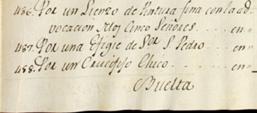 486. Por un Lienzo de Pintura fina con la ad
vocacion de los Cinco Señores . . . . en=
487. Por una Efigie de Sor S. Pedro . . en=
488. Por un Crucifixo Chico . . . . . . en=
Buelta